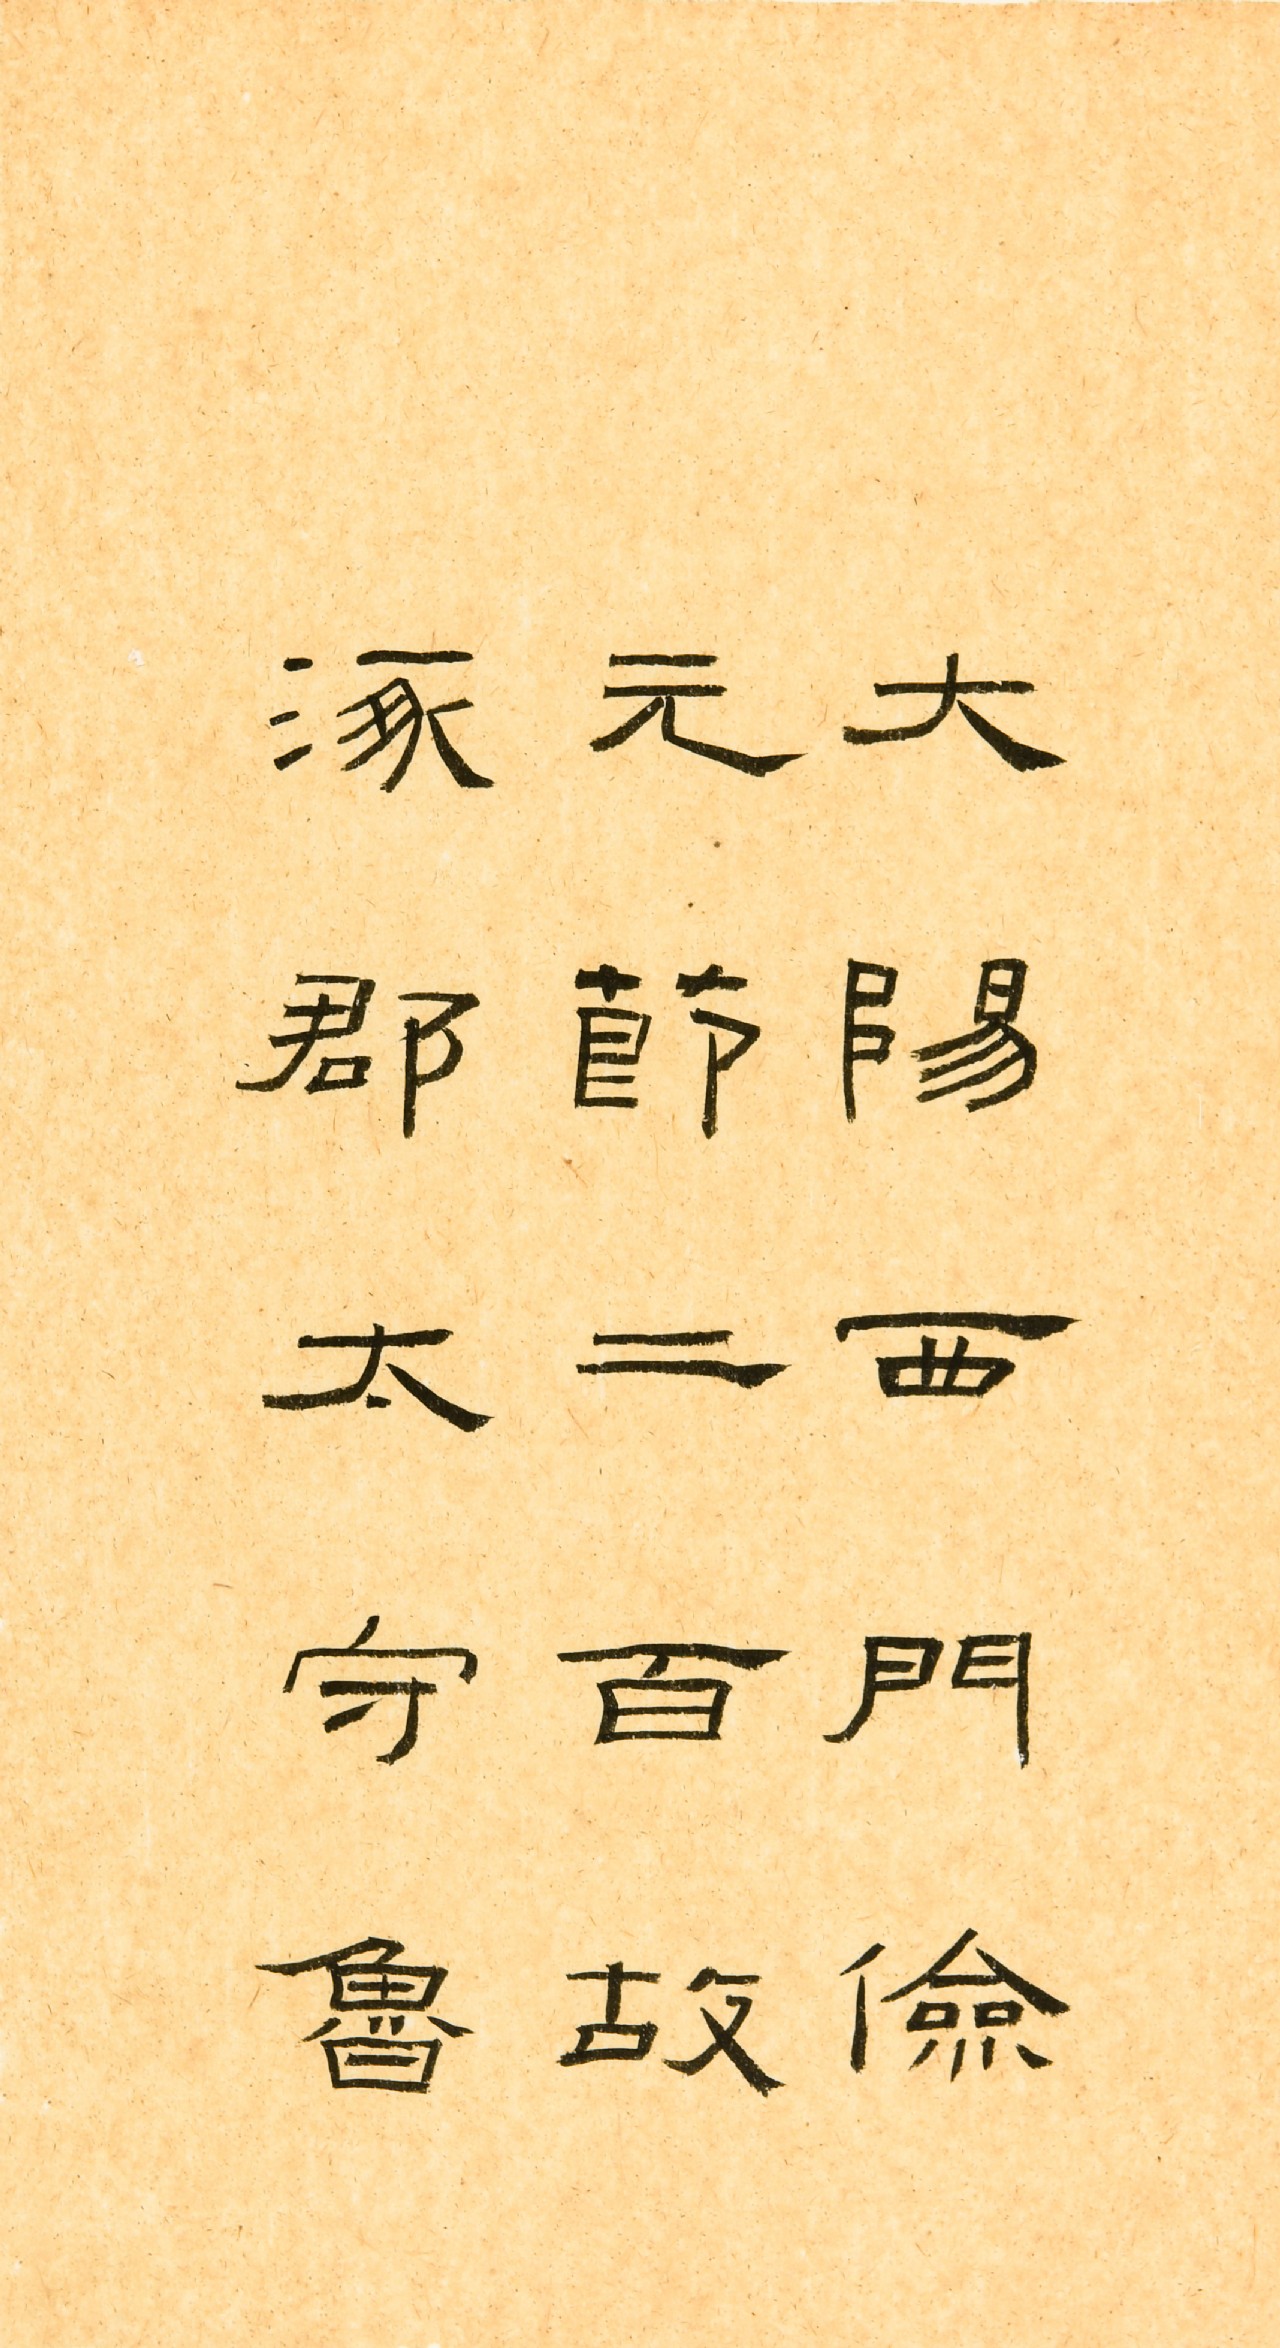 大陽西門儉
元節二百故
涿郡太守魯